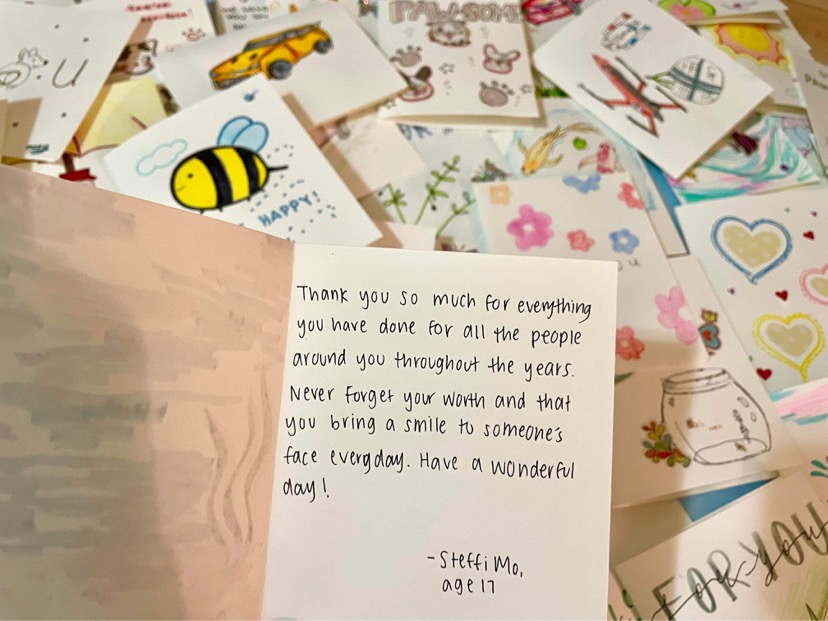 PAW-SOME
HAPPY!
Thank you so much for everything
you have done for all the people
around you throughout the years.
Never forget your worth and that
you bring a smile to someone's
face everyday. Have a wonderful
day!
-Steffi Mo,
age 17
FOR YOU